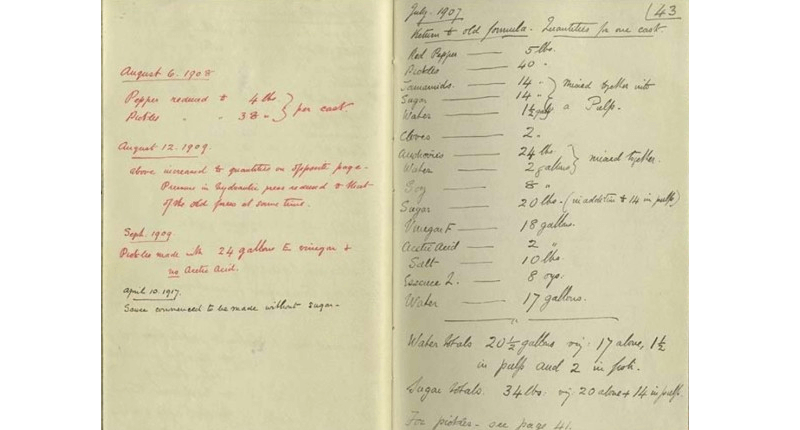 August 6. 1908
Pepper reduced to 4 lbs } per cask.
Pickles " " 38 "
August 12. 1909.
above increased to quantities on opposite page.
Pressure in hydraulic press reduced to that
of the old press at same time.
Sept. 1909.
Pickles made with 24 gallons to vinegar &
no Acetic Acid.
April 10. 1917.
Sauce commenced to be made without Sugar -
July. 1907 43
Return to old formula. Quantities for one cask.
Red Pepper — 5 lbs.
Pickles — 40 "
Tamarinds. — 14 " } mixed together into
Sugar — 14 "
Water — 1½ galls a Pulp.
Cloves — 2 "
Anchovies — 24 lbs. } mixed together.
Water — 2 gallons
Soy — 8 "
Sugar — 20 lbs. (in addition to 14 in pulp)
Vinegar — 18 gallons.
Acetic Acid — 2 "
Salt — 10 lbs.
Essence L. — 8 ozs.
Water — 17 gallons.
Water totals 20½ gallons viz: 17 alone, 1½
in pulp and 2 in fish.
Sugar totals. 34 lbs. viz 20 alone + 14 in pulp.
For pickles - see page 41.